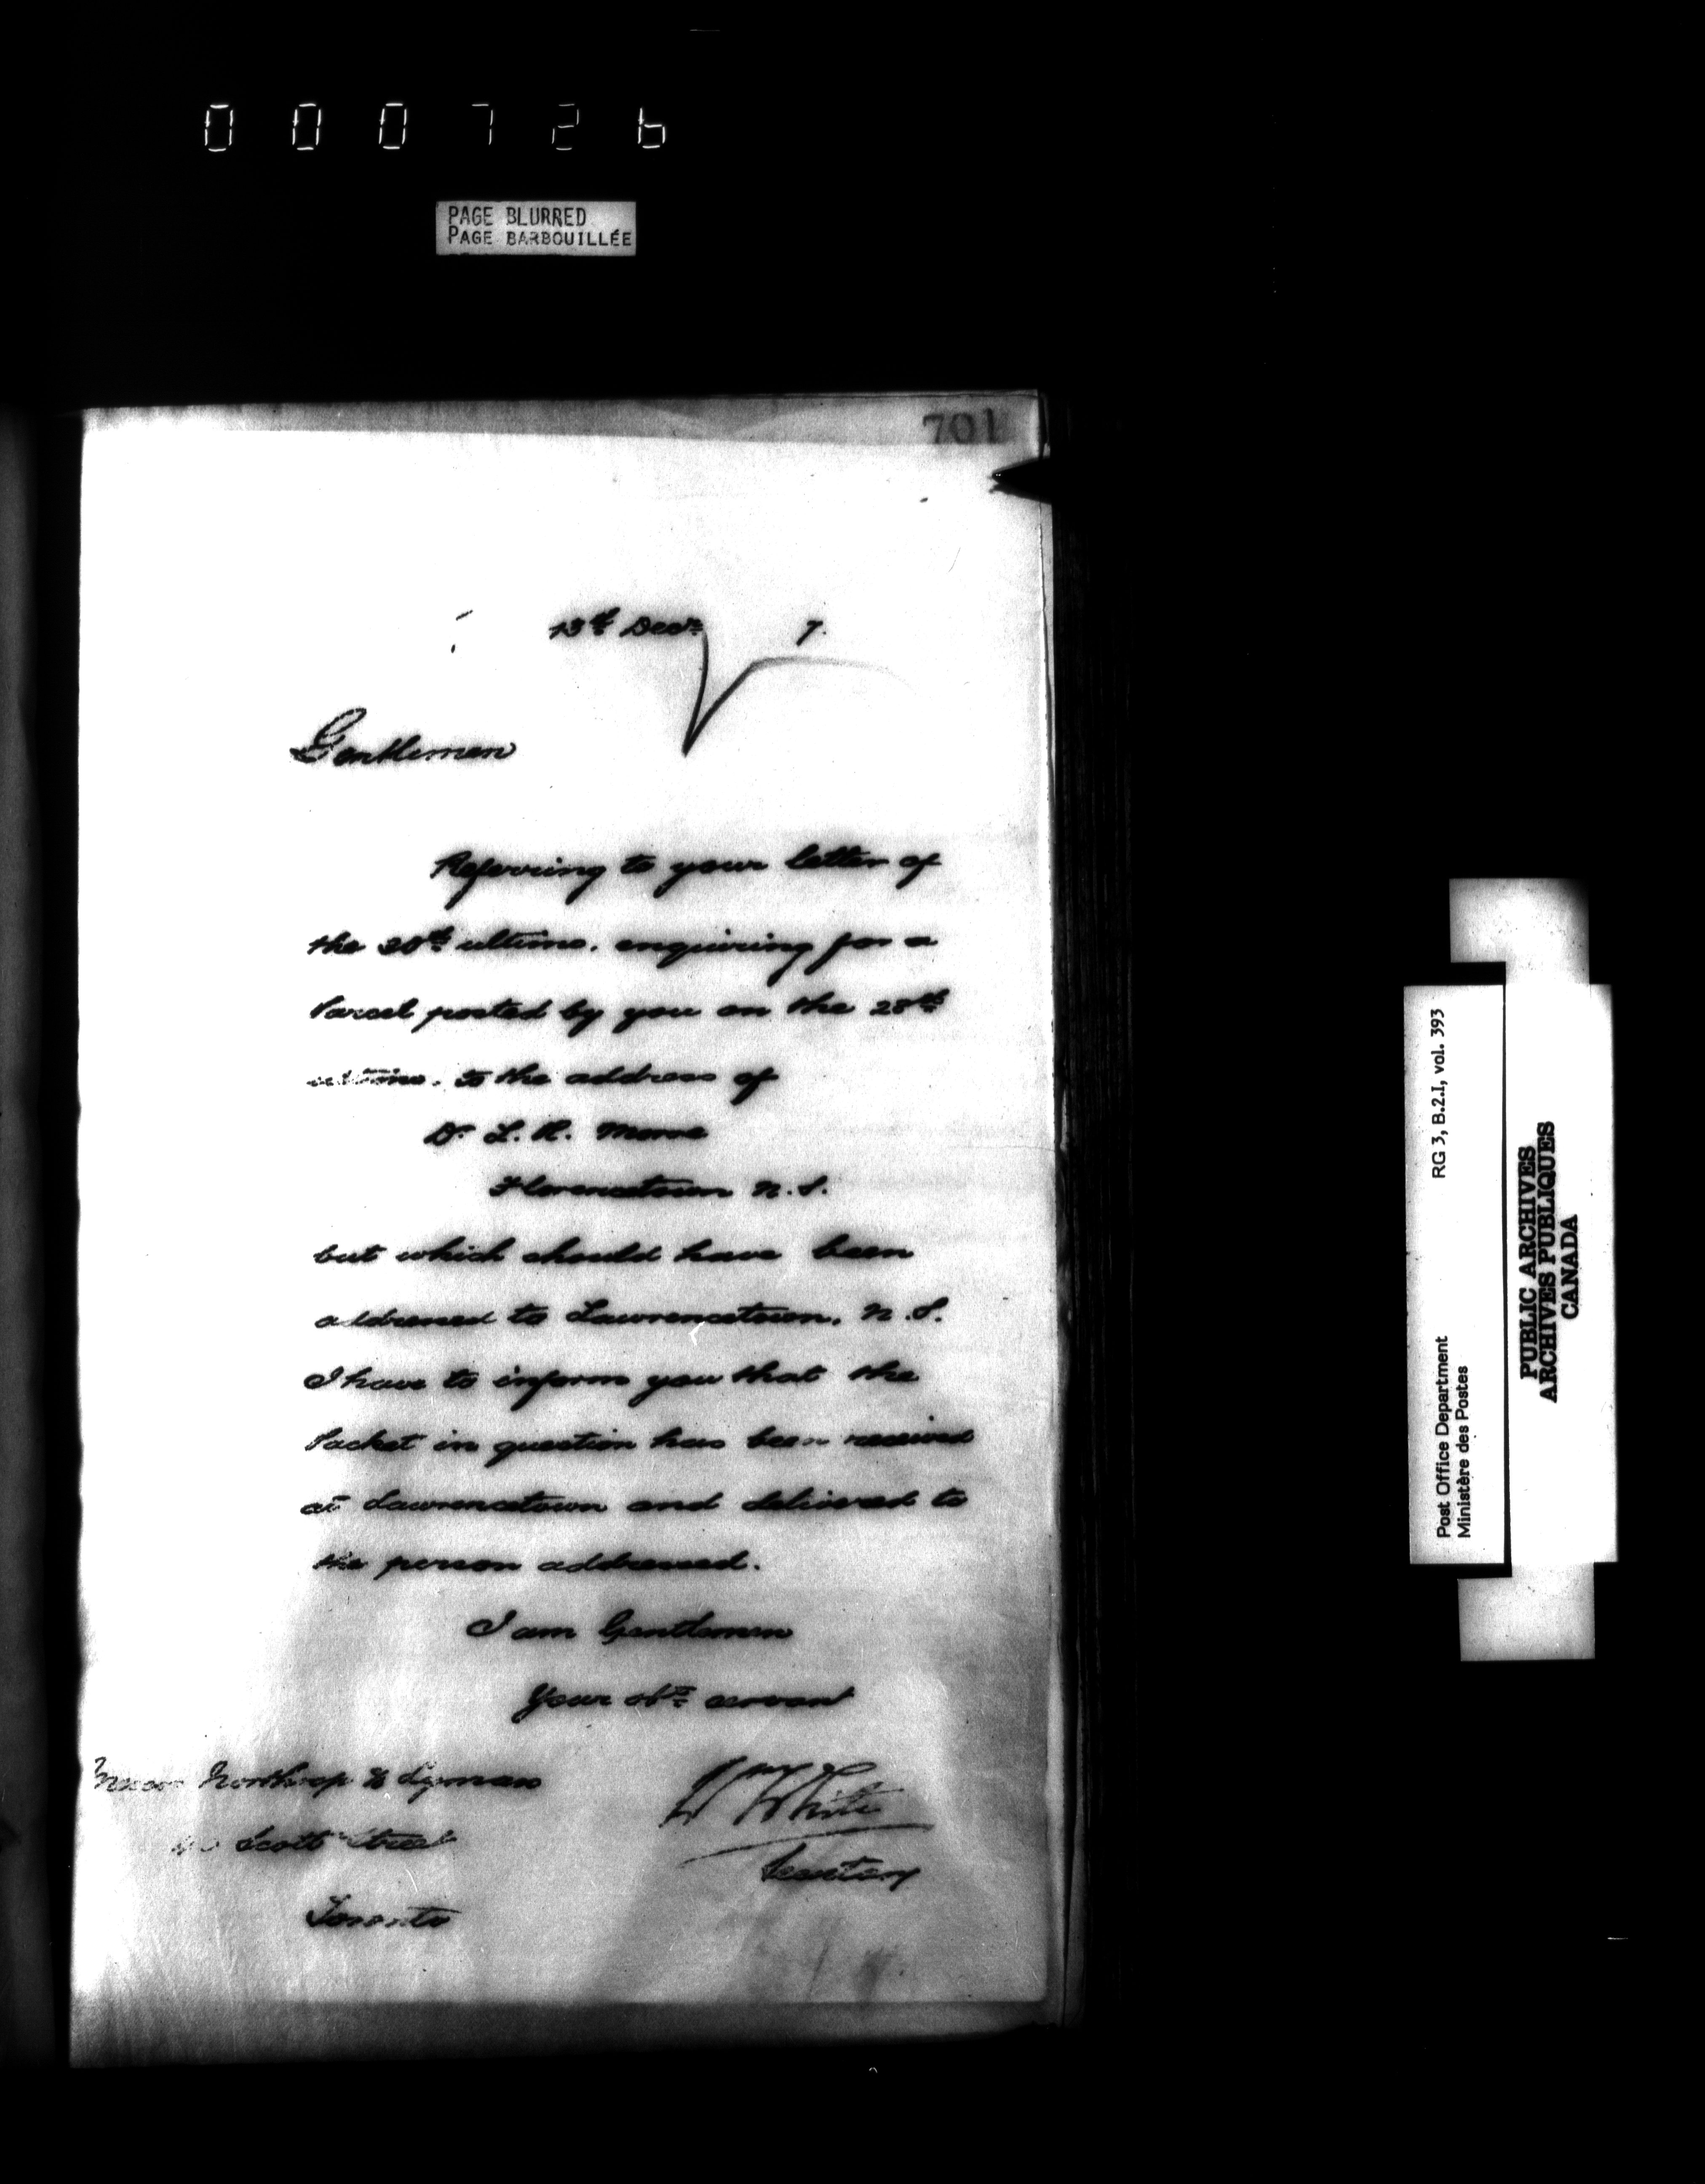 000726
PAGE BLURRED
PAGE BARBOUILLÉE
701
13th Decr 7.
Gentlemen
Referring to your letter of
the 30th ultimo. enquiring for a
Parcel posted by you on the 28th
ultimo. to the address of
Dr L. R. Morse
Florencetown N.S.
but which should have been
addressed to Lawrencetown, N.S.
I have to inform you that the
Packet in question has been received
at Lawrencetown and delivered to
the person addressed.
I am Gentlemen
Your obt servant
Wm White
Secretary
Messrs Northrop & Lyman
Scott Street
Toronto
Post Office Department RG 3, B.2.I, vol. 393
Ministère des Postes
PUBLIC ARCHIVES
ARCHIVES PUBLIQUES
CANADA